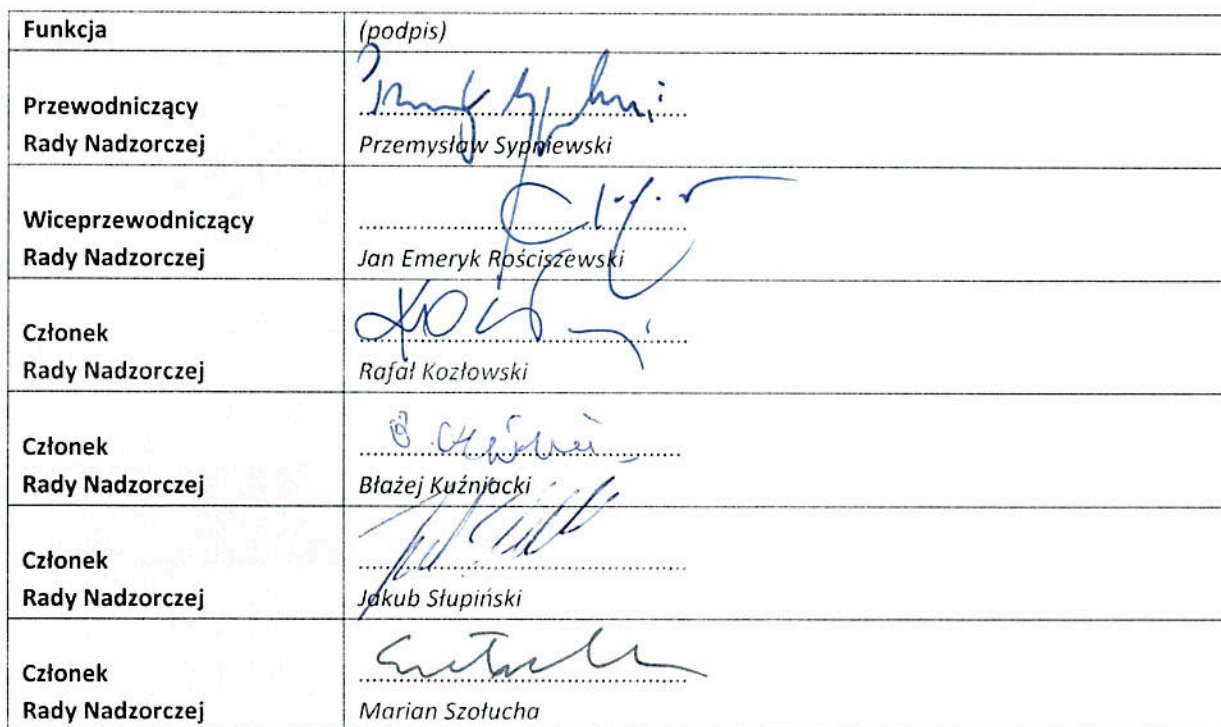 Funkcja (podpis)
Przewodniczący
Rady Nadzorczej Przemysław Sypniewski
Wiceprzewodniczący
Rady Nadzorczej Jan Emeryk Rościszewski
Członek
Rady Nadzorczej Rafał Kozłowski
Członek
Rady Nadzorczej Błażej Kuźniacki
Członek
Rady Nadzorczej Jakub Słupiński
Członek
Rady Nadzorczej Marian Szołucha